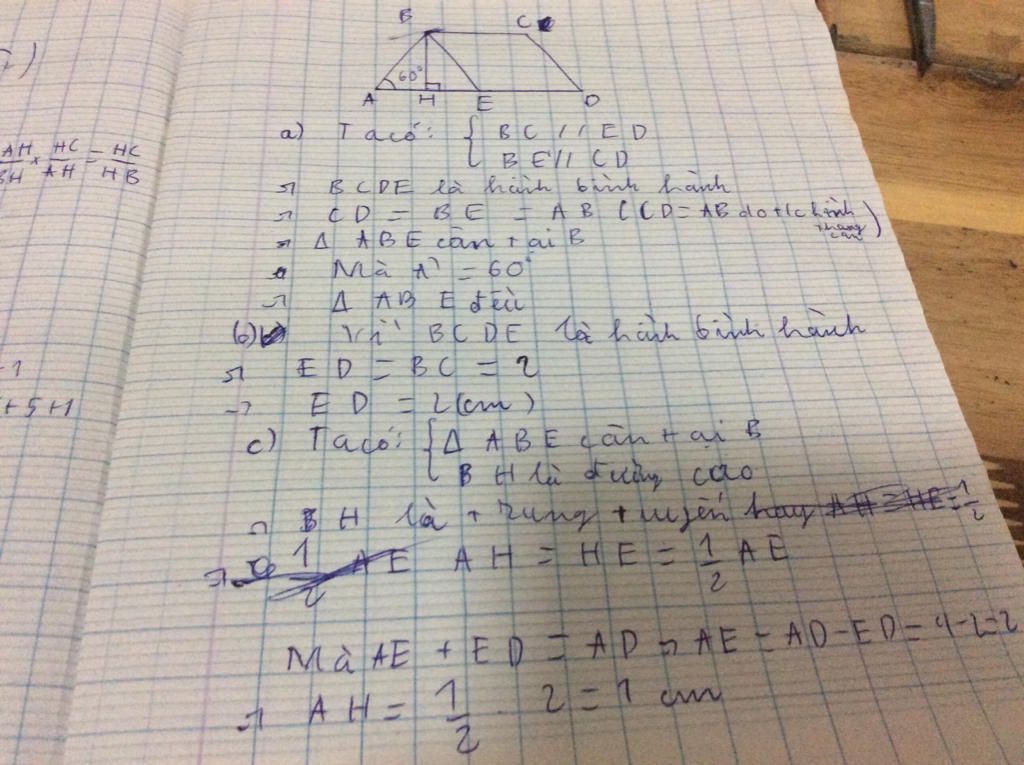 B C
60°
A H E D
a) Ta có: { BC // ED
BE // CD
AH/BH × HC/AH = HC/HB
=> BCDE là hình bình hành
=> CD = BE = AB (CD = AB do t/c hình thang cân)
=> Δ ABE cân tại B
Mà A = 60°
=> Δ ABE đều
b) Vì BCDE là hình bình hành
-1
=> ED = BC = 2
+5+1
=> ED = 2(cm)
c) Ta có: { Δ ABE cân tại B
BH là đường cao
=> BH là trung tuyến hay AH = HE = 1/2
=> 1/2 AE AH = HE = 1/2 AE
Mà AE + ED = AD => AE = AD - ED = 4-2=2
=> AH = 1/2 . 2 = 1 cm